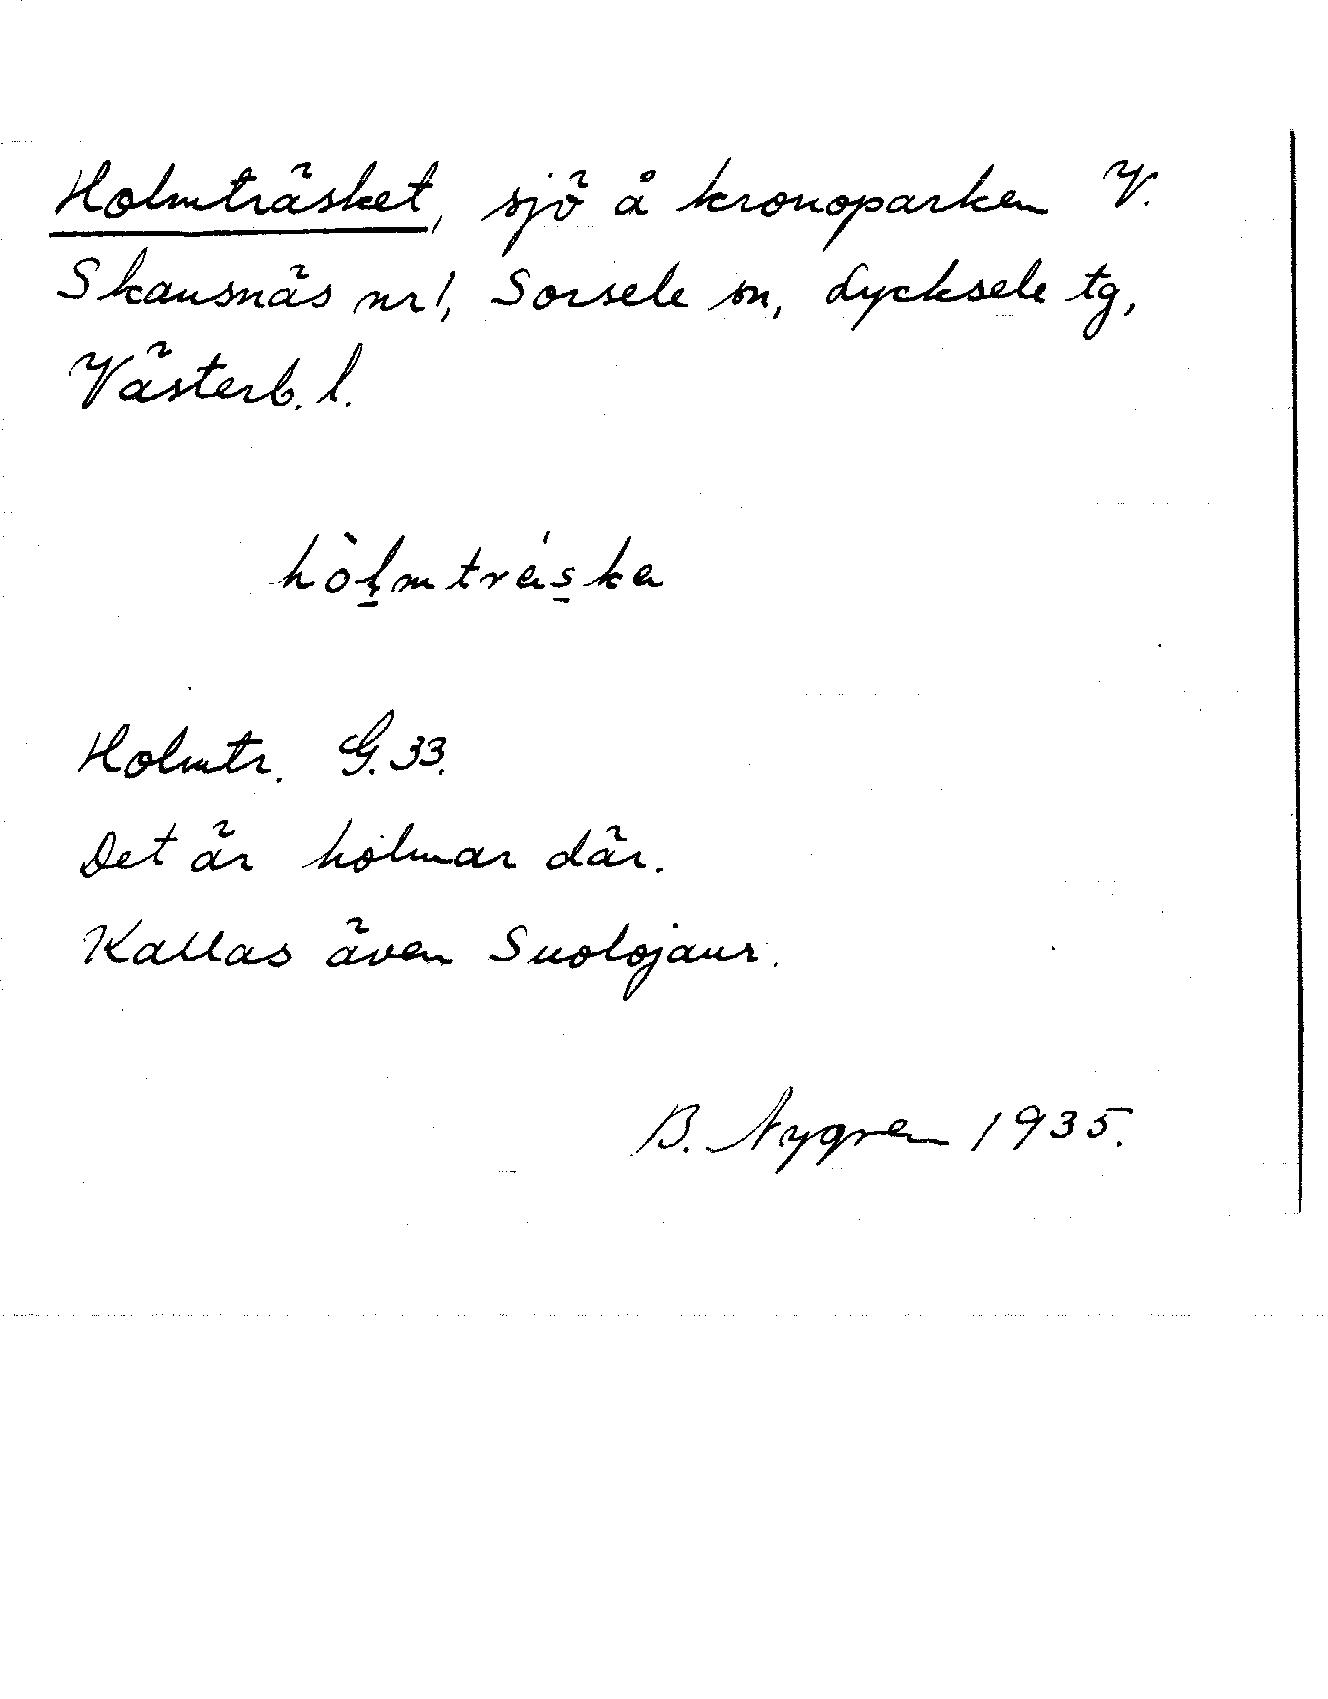 Holmträsket, sjö å kronoparken V.
Skansnäs nr 1, Sorsele sn, Lycksele tg,
Västerb. l.
hòl̠mtrás̠ka
Holmtr. G. 33.
Det är holmar där.
Kallas även Suolojaur.
B. Nygren 1935.